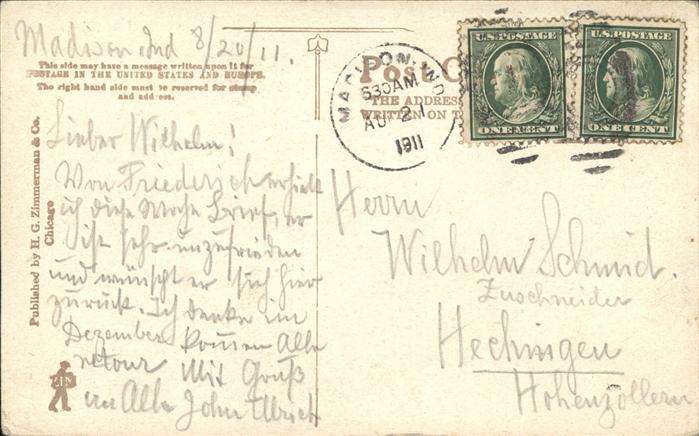 Madison Ind 8/20/11.
This side may have a message written upon it for
POSTAGE IN THE UNITED STATES AND EUROPE.
The right hand side must be reserved for stamp
and address.
Published by H. G. Zimmerman & Co.
Chicago
ZIM
Lieber Wilhelm!
Von Friederich erhielt
ich diese Woche Brief, er
ist sehr unzufrieden
und wünscht er sich hier
zurück. Ich denke im
Dezember kommen Alle
retour Mit Gruß
an Alle John Ulrich
Post C
THE ADDRESS
WRITTEN ON T
MADISON, IND
630AM
AU 2
1911
U.S. POSTAGE
ONE CENT
U.S. POSTAGE
ONE CENT
Herrn
Wilhelm Schmid.
Zuschneider
Hechingen
Hohenzollern